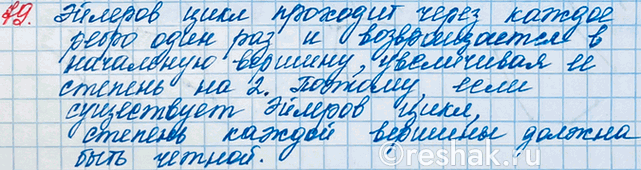 79. Эйлеров цикл проходит через каждое
ребро один раз и возвращается в
начальную вершину, увеличивая ее
степень на 2. Поэтому, если
существует Эйлеров цикл,
степень каждой вершины должна
быть четной.
©reshak.ru